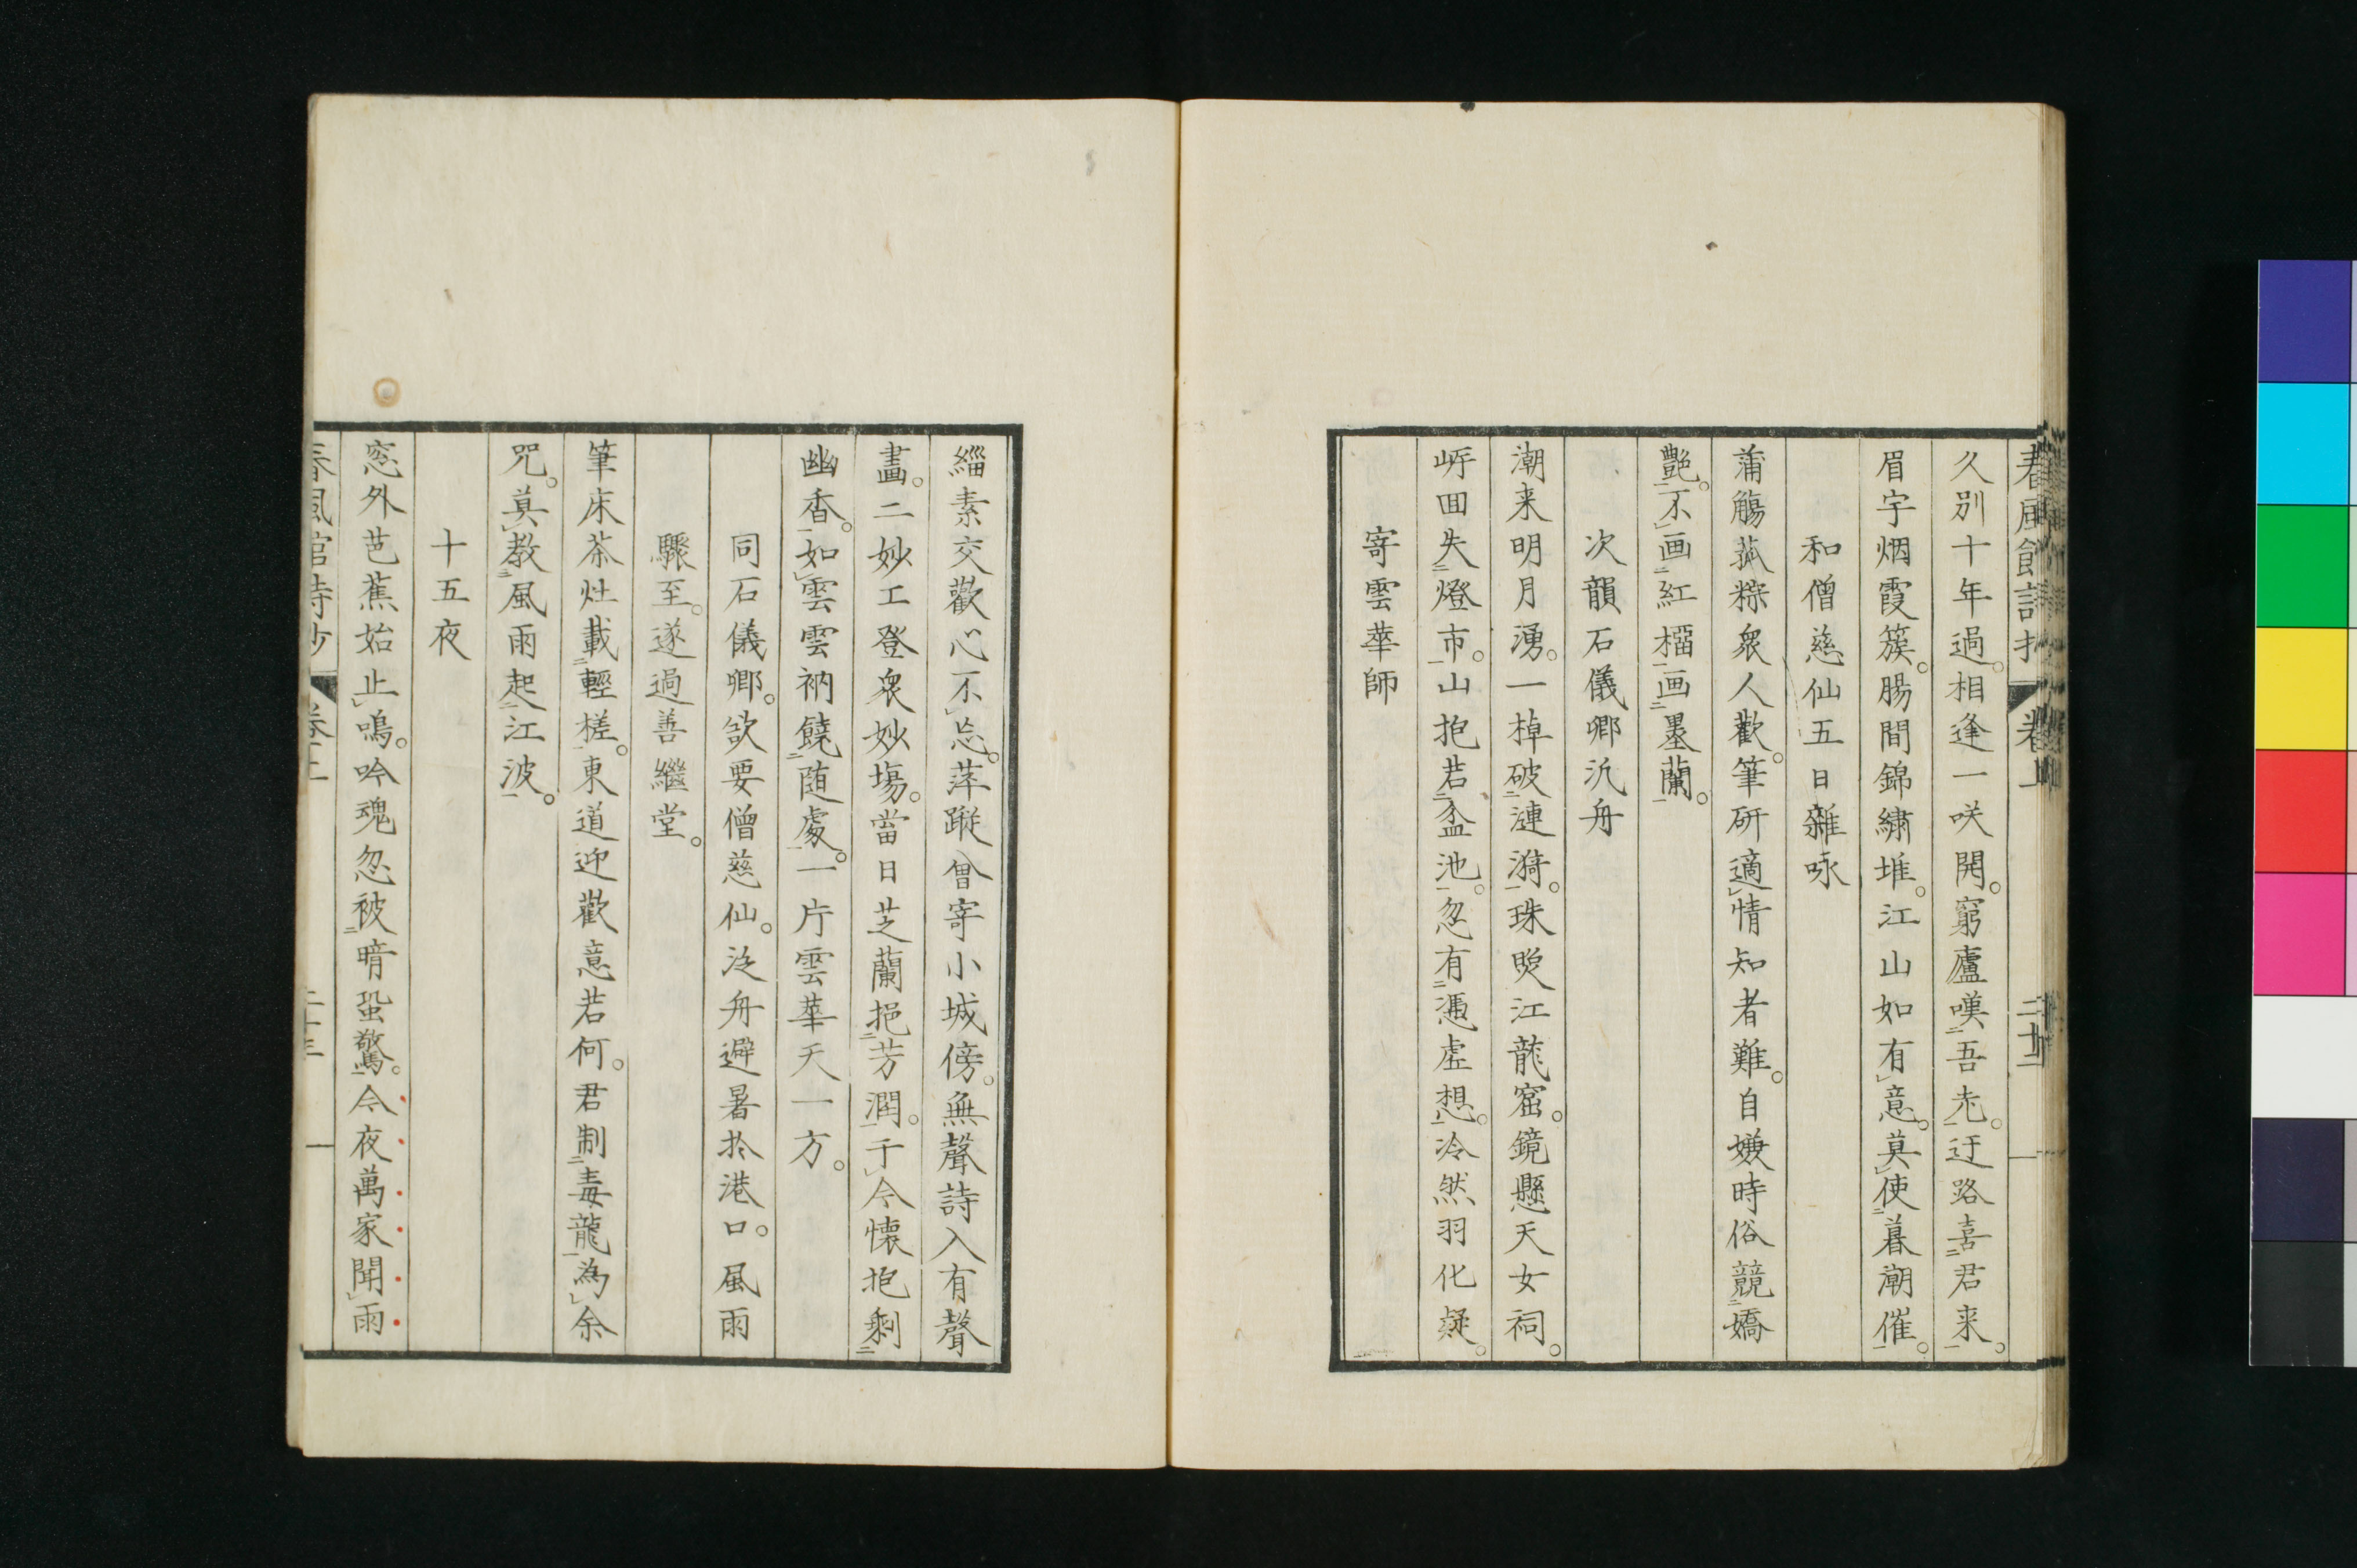 春風館詩抄 卷上 二十二
久別十年過。相逢一咲開。窮廬嘆二吾老一。迂路喜二君来一。
眉宇烟霞簇。腸間錦繍堆。江山如有レ意。莫レ使二暮潮催一。
和僧慈仙五日雜咏
蒲觴菰粽衆人歡。筆研適レ情知者難。自嫌時俗競二嬌
艶一。不レ画二紅榴一画二墨蘭一。
次韻石儀卿汎舟
潮来明月湧。一棹破二漣漪一。珠㷔江龍窟。鏡懸天女祠。
㟁回失二燈市一。山抱若二盆池一。忽有二憑虚想一。冷然羽化疑。
寄雲華師
緇素交歡心不レ忘。萍蹤曾寄小城傍。無聲詩入有聲
畫。二妙工登衆妙場。當日芝蘭挹二芳潤一。于レ今懐抱剩二
幽香一。如レ雲雲衲饒二随處一。一片雲華天一方。
同石儀卿。欲要僧慈仙。泛舟避暑於港口。風雨
驟至。遂過善繼堂。
筆床茶灶載二輕槎一。東道迎歡意若何。君制二毒龍一為レ余
咒。莫レ教三風雨起二江波一。
十五夜
窓外芭蕉始止レ鳴。吟魂忽被二暗蛩驚一。今夜萬家聞レ雨
春風館詩抄 卷上 二十三